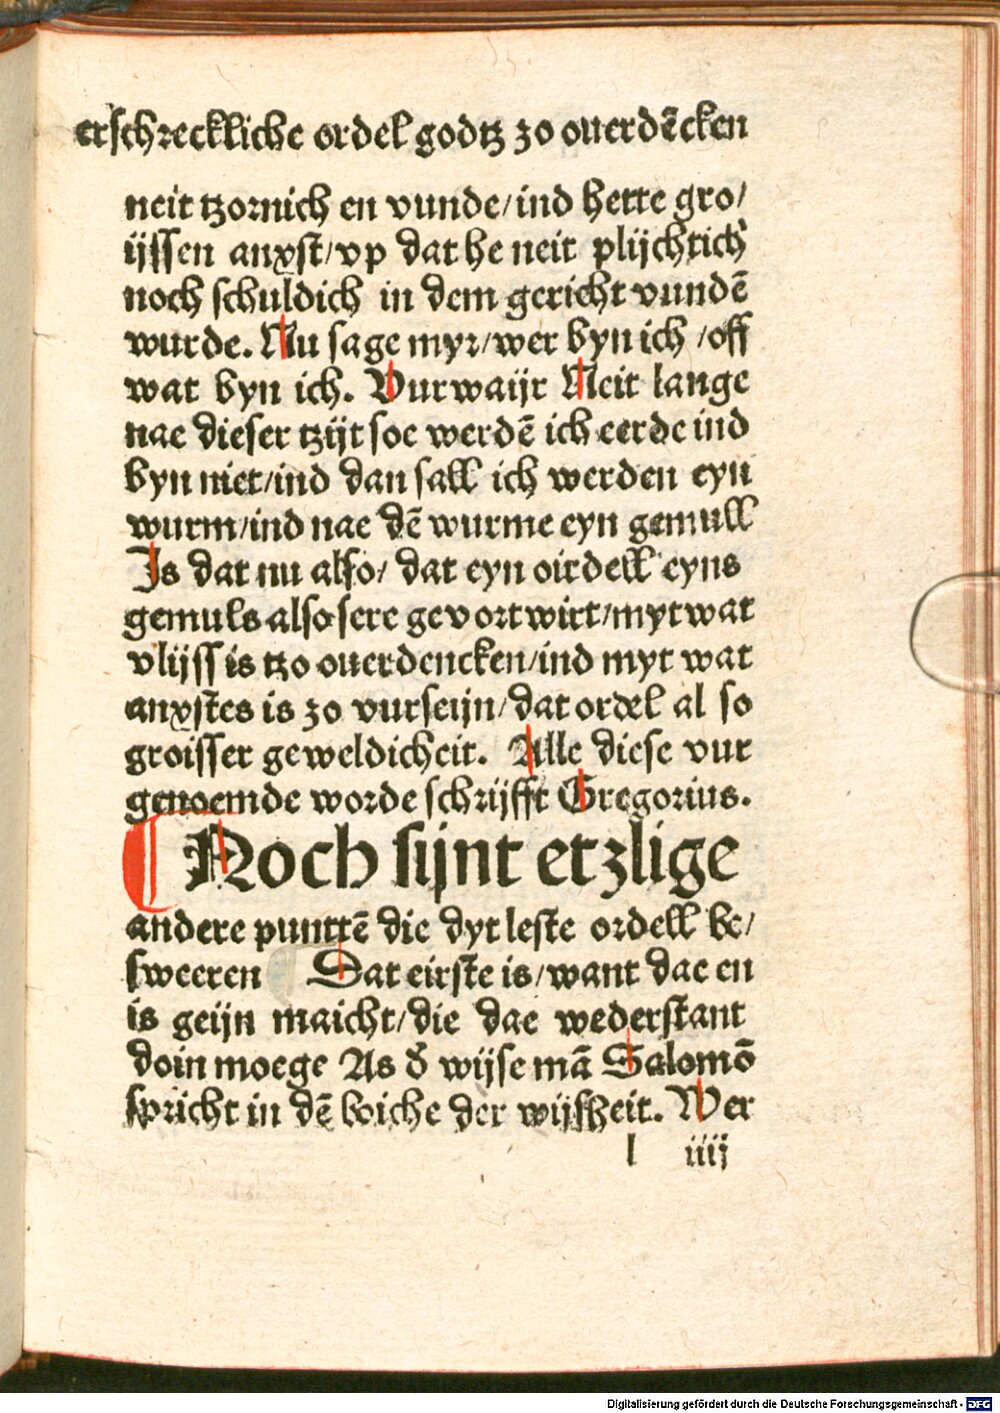 erschreckliche ordel godtz zo ouerdēcken
neit tzornich en vunde/ind hette gro/
ijssen anxst/vp dat he neit plijchtich
noch schuldich in dem gericht vundē
wurde. Nu sage myr/wer byn ich /off
wat byn ich. Vurwaijr Neit lange
nae dieser tzijt soe werdē ich eerde ind
byn niet/ind dan sall ich werden eyn
wurm/ind nae dē wurme eyn gemull
Is dat nu also/ dat eyn oirdell eyns
gemuls also sere gevort wirt/myt wat
vlijss is tzo ouerdencken/ind myt wat
anxstes is zo vurseijn/dat ordel al so
groisser geweldicheit. Alle diese vur
genoemde worde schrijfft Gregorius.
Noch sijnt etzlige
andere punttē die dyt leste ordell be/
sweeren Dat eirste is/want dae en
is geijn maicht/die dae wederstant
doin moege As d̄ wijse mā Salomō
spricht in dē boiche der wijsheit. Wer
l iiij
Digitalisierung gefördert durch die Deutsche Forschungsgemeinschaft - DFG